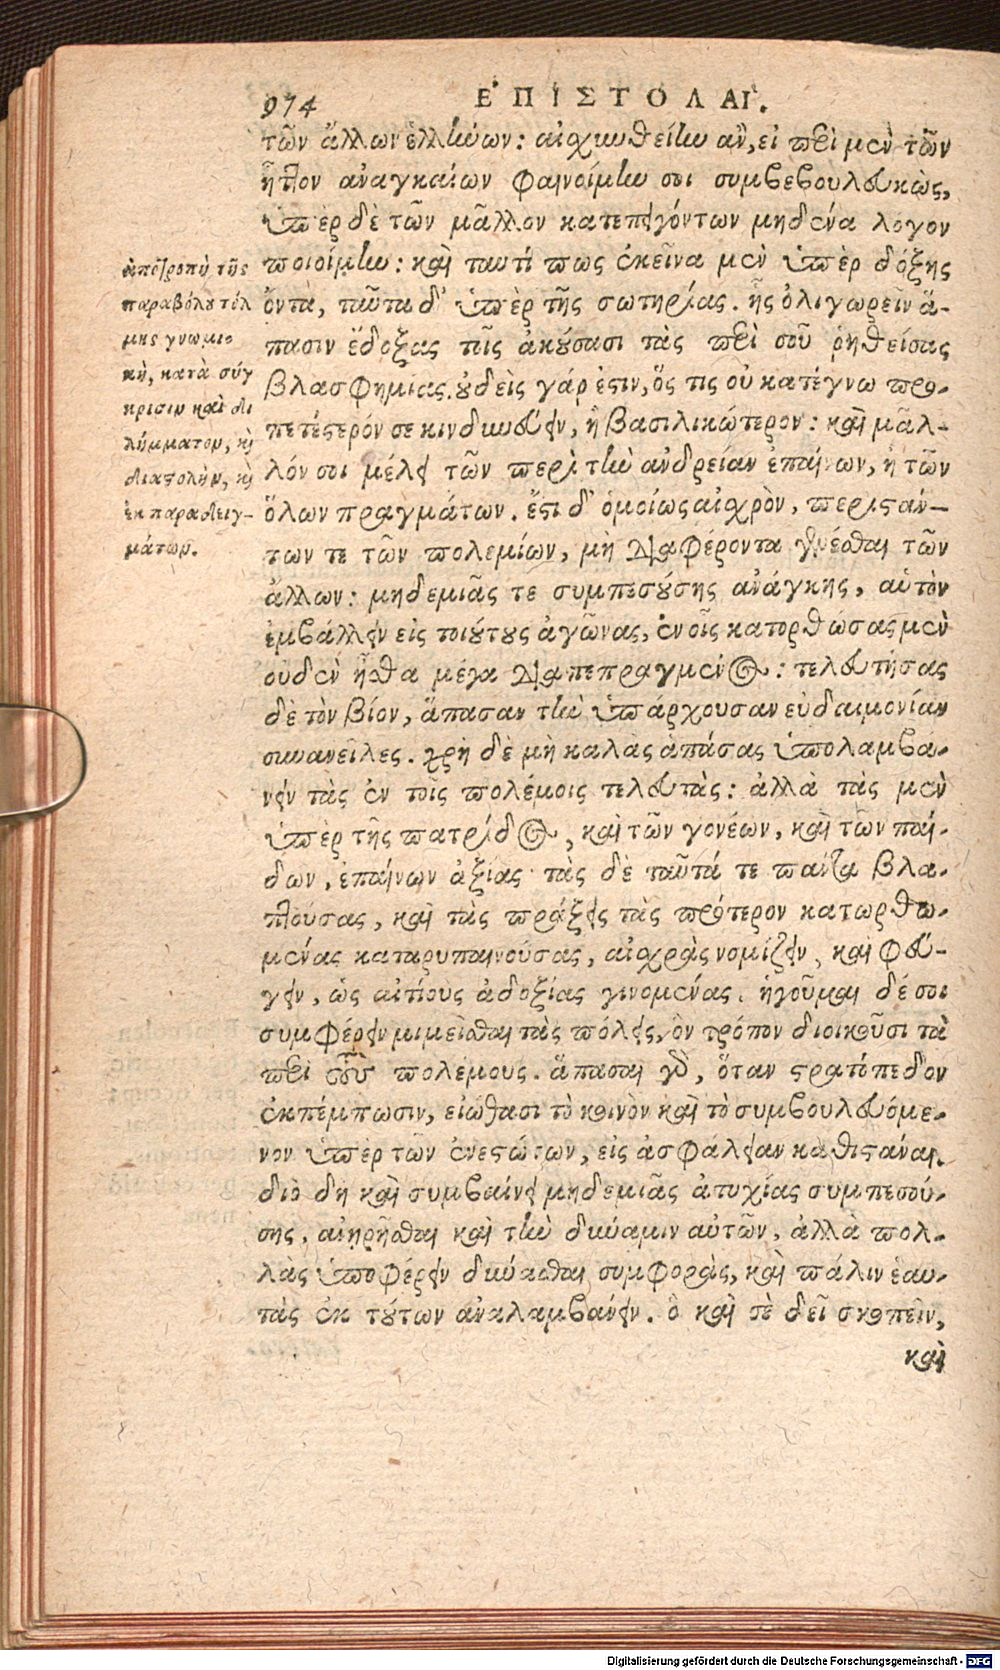 974
ΕΠΙΣΤΟΛΑΙ.
τῶν ἄλλων ἑλλήνων: αἰσχυνθείην ἂν, εἰ περὶ μὲν τῶν
ἧττον ἀναγκαίων φαινοίμην σοι συμβεβουλευκὼς,
ὑπὲρ δὲ τῶν μᾶλλον κατεπειγόντων μηδένα λόγον
ποιοίμην: καὶ ταυτί πως ἐκεῖνα μὲν ὑπὲρ δόξης
ὄντα, ταῦτα δ' ὑπὲρ τῆς σωτηρίας. ἧς ὀλιγωρεῖν ἅ-
πασιν ἔδοξας τοῖς ἀκούσασι τὰς περὶ σοῦ ῥηθείσας
βλασφημίας. οὐδεὶς γάρ ἐστιν, ὅς τις οὐ κατέγνω προ-
πετέστερόν σε κινδυνεύειν, ἢ βασιλικώτερον: καὶ μᾶλ-
λόν σοι μέλει τῶν περὶ τὴν ἀνδρείαν ἐπαίνων, ἢ τῶν
ὅλων πραγμάτων. ἔστι δ' ὁμοίως αἰσχρὸν, περιστάν-
των τε τῶν πολεμίων, μὴ διαφέροντα γενέσθαι τῶν
ἄλλων: μηδεμιᾶς τε συμπεσούσης ἀνάγκης, αὑτὸν
ἐμβάλλειν εἰς τοιούτους ἀγῶνας, ἐν οἷς κατορθώσας μὲν
οὐδὲν ἦσθα μέγα διαπεπραγμένος: τελευτήσας
δὲ τὸν βίον, ἅπασαν τὴν ὑπάρχουσαν εὐδαιμονίαν
συνανεῖλες. χρὴ δὲ μὴ καλὰς ἁπάσας ὑπολαμβά-
νειν τὰς ἐν τοῖς πολέμοις τελευτάς: ἀλλὰ τὰς μὲν
ὑπὲρ τῆς πατρίδος, καὶ τῶν γονέων, καὶ τῶν παί-
δων, ἐπαίνων ἀξίας· τὰς δὲ ταῦτά τε πάντα βλα-
πτούσας, καὶ τὰς πράξεις τὰς πρότερον κατωρθω-
μένας καταρυπαινούσας, αἰσχρὰς νομίζειν, καὶ φεύ-
γειν, ὡς αἰτίους ἀδοξίας γινομένας. ἡγοῦμαι δέ σοι
συμφέρειν μιμεῖσθαι τὰς πόλεις, ὃν τρόπον διοικοῦσι τὰ
περὶ τοὺς πολέμους. ἅπασαι γὰρ, ὅταν στρατόπεδον
ἐκπέμπωσιν, εἰώθασι τὸ κοινὸν καὶ τὸ συμβουλευόμε-
νον ὑπὲρ τῶν ἐνεστώτων, εἰς ἀσφάλειαν καθιστάναι.
διὸ δὴ καὶ συμβαίνει μηδεμιᾶς ἀτυχίας συμπεσού-
σης, ἀνῃρῆσθαι καὶ τὴν δύναμιν αὐτῶν, ἀλλὰ πολ-
λὰς ὑποφέρειν δύνασθαι συμφορὰς, καὶ πάλιν ἑαυ-
τὰς ἐκ τούτων ἀναλαμβάνειν. ὃ καὶ σὲ δεῖ σκοπεῖν,
καὶ
ἀποτροπὴ τῆς
παραβόλου τόλ
μης γνωμι-
κὴ, κατὰ σύγ
κρισιν καὶ δι
λήμματον, καὶ
διαστολὴν, καὶ
ἐκ παραδειγ-
μάτων.
Digitalisierung gefördert durch die Deutsche Forschungsgemeinschaft - DFG